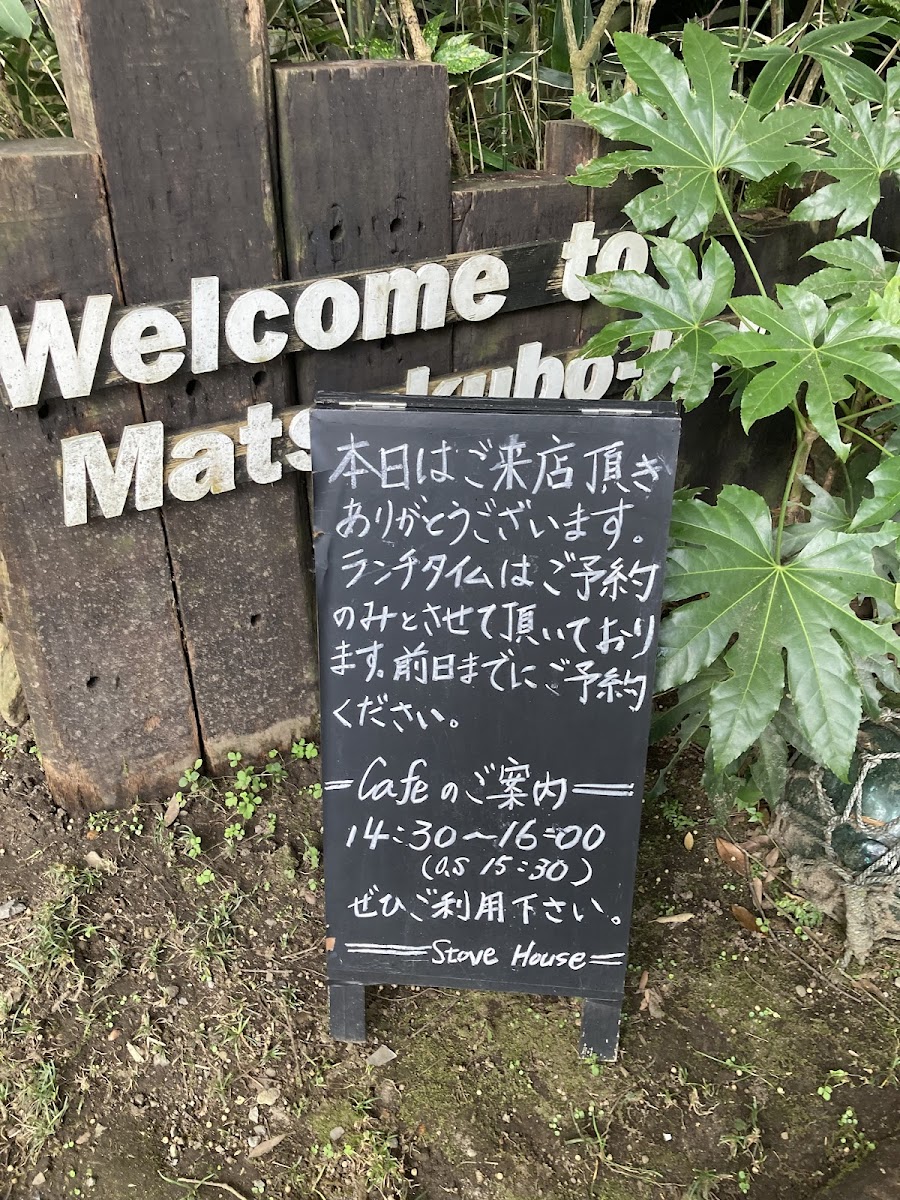 Welcome to
本日はご来店頂き
ありがとうございます。
ランチタイムはご予約
のみとさせて頂いており
ます。前日までにご予約
ください。
Cafeのご案内
14:30〜16:00
(O.S 15:30)
ぜひご利用下さい。
Stove House